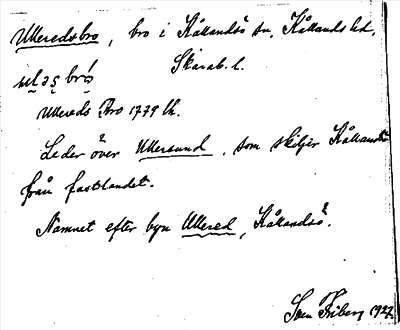 Ulleredsbro, bro i Kållandsö sn, Kållands hd,
Skarab. l.
Ullereds Bro 1779 lh.
Leder över Ullersund, som skiljer Kållandsö
från fastlandet.
Namnet efter byn Ullered, Kållandsö.
Sven Friberg 1927